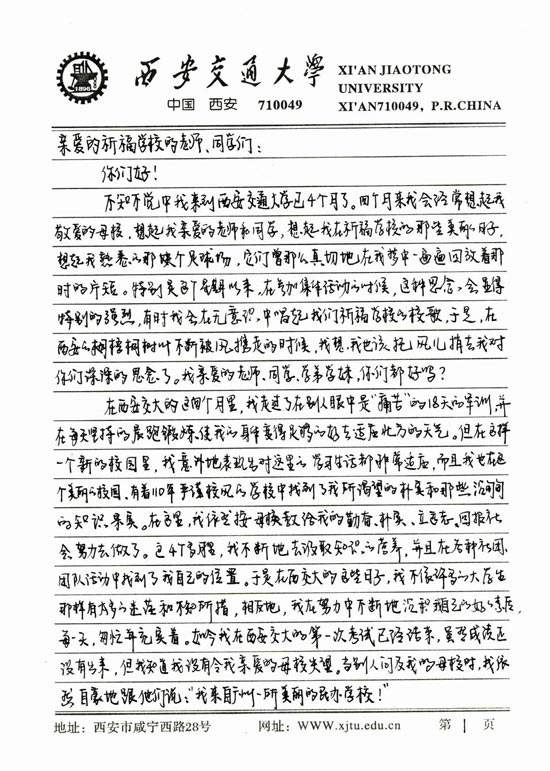 西安交通大學
中国 西安 710049
XI'AN JIAOTONG
UNIVERSITY
XI'AN710049, P.R.CHINA
1896
亲爱的祈福学校的老师、同学们：
你们好！
不知不觉中我来到西安交通大学已4个月了。四个月来我会经常想起我
敬爱的母校，想起我亲爱的老师和同学，想起我在祈福学校的那些美丽的日子，
想起我熟悉的那块个足球场，它们曾那么真切地在我梦中一遍遍回放着那
时的片段。特别是这个星期以来，在参加集体活动的时候，这种思念会显得
特别的强烈，有时我会在无意识中唱起我们祈福学校的校歌，于是，在
西安的梧桐树叶不断被风携走的时候，我想，我也该托风儿捎去我对
你们深深的思念了。我亲爱的老师、同学、学弟学妹，你们都好吗？
在西安交大的这四个月里，我走过了在别人眼中是“痛苦”的18天的军训，并
在每天坚持的晨跑锻炼使我的身体变得足够的好去适应北方的天气。但在这样
一个新的校园里，我意外地表现出对这里的学习生活都非常适应，而且我也在这
个美丽的校园、有着110年严谨校风的学校中找到了我所渴望的朴实和那些沉甸甸
的知识果实。在这里，我依然按母校教给我的勤奋、朴实、立志、回报社
会努力去做了。这4个多月里，我不断地去汲取知识的营养，并且在各种社团、
团队活动中找到了我自己的位置。于是在西安交大的这些日子，我不像许多的大学生
那样有太多的迷茫和不知所措，相反地，我在努力中不断地沉积自己的好的素质，
每一天，匆忙并充实着。如今我在西安交大的第一次考试已经结束，虽然成绩还
没有出来，但我知道我没有令我亲爱的母校失望。当别人问及我的母校时，我依
然自豪地跟他们说：“我来自广州一所美丽的民办学校！”
地址：西安市咸宁西路28号 网址：WWW.xjtu.edu.cn 第 1 页